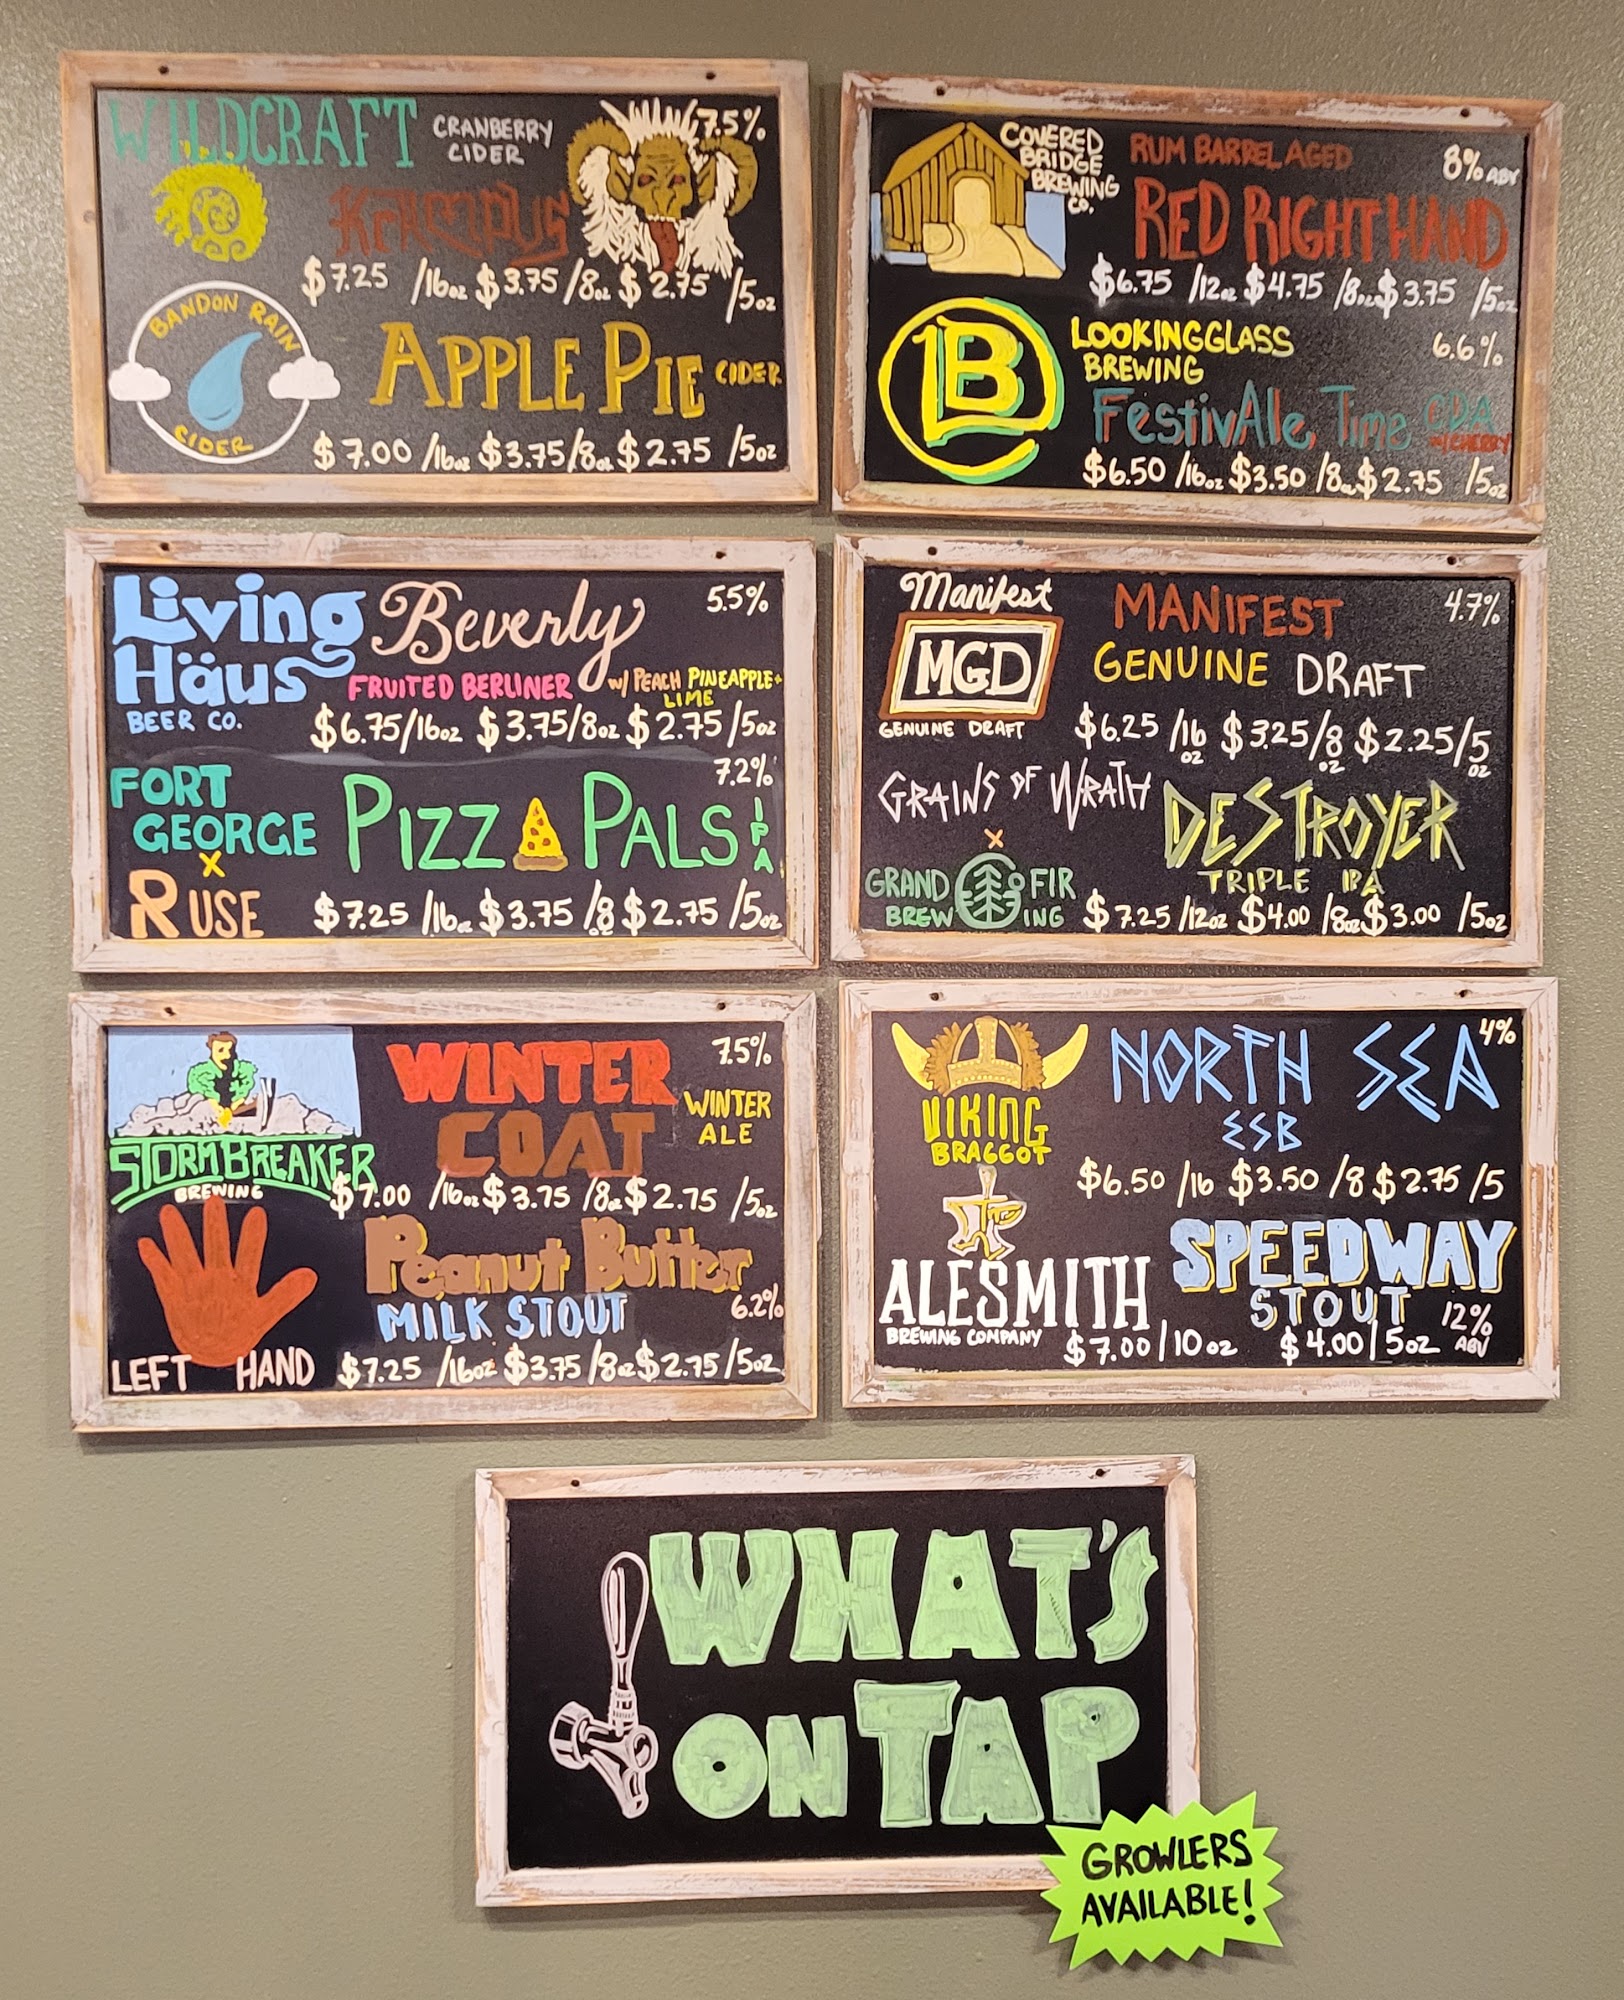 WILDCRAFT CRANBERRY CIDER 7.5%
KRAMPUS
$7.25 /16oz $3.75/8oz $2.75 /5oz
BANDON RAIN CIDER
APPLE PIE CIDER
$7.00 /16oz $3.75/8oz $2.75 /5oz
COVERED BRIDGE BREWING CO.
RUM BARREL AGED 8% ABV
RED RIGHT HAND
$6.75 /12oz $4.75 /8oz $3.75 /5oz
B
LOOKINGGLASS BREWING 6.6%
FestivAle Time CDA
W/CHERRY
$6.50 /16oz $3.50 /8oz $2.75 /5oz
Living Häus
BEER CO.
Beverly 5.5%
FRUITED BERLINER W/ PEACH PINEAPPLE + LIME
$6.75/16oz $3.75/8oz $2.75/5oz
FORT GEORGE
X
RUSE
7.2%
PIZZ PALS IPA
$7.25 /16oz $3.75 /8oz $2.75 /5oz
Manifest
MGD
GENUINE DRAFT
MANIFEST 4.7%
GENUINE DRAFT
$6.25 /16oz $3.25/8oz $2.25/5oz
GRAINS OF WRATH
X
GRAND FIR
BREWING
DESTROYER
TRIPLE IPA
$7.25 /12oz $4.00 /8oz $3.00 /5oz
STORMBREAKER
BREWING
WINTER COAT 7.5%
WINTER ALE
$7.00 /16oz $3.75 /8oz $2.75 /5oz
LEFT HAND
Peanut Butter
MILK STOUT 6.2%
$7.25 /16oz $3.75 /8oz $2.75/5oz
VIKING
BRAGGOT
NORTH SEA 4%
ESB
$6.50 /16 $3.50 /8 $2.75 /5
ALESMITH
BREWING COMPANY
SPEEDWAY
STOUT 12% ABV
$7.00/10oz $4.00/5oz
WHAT'S
ON TAP
GROWLERS
AVAILABLE!